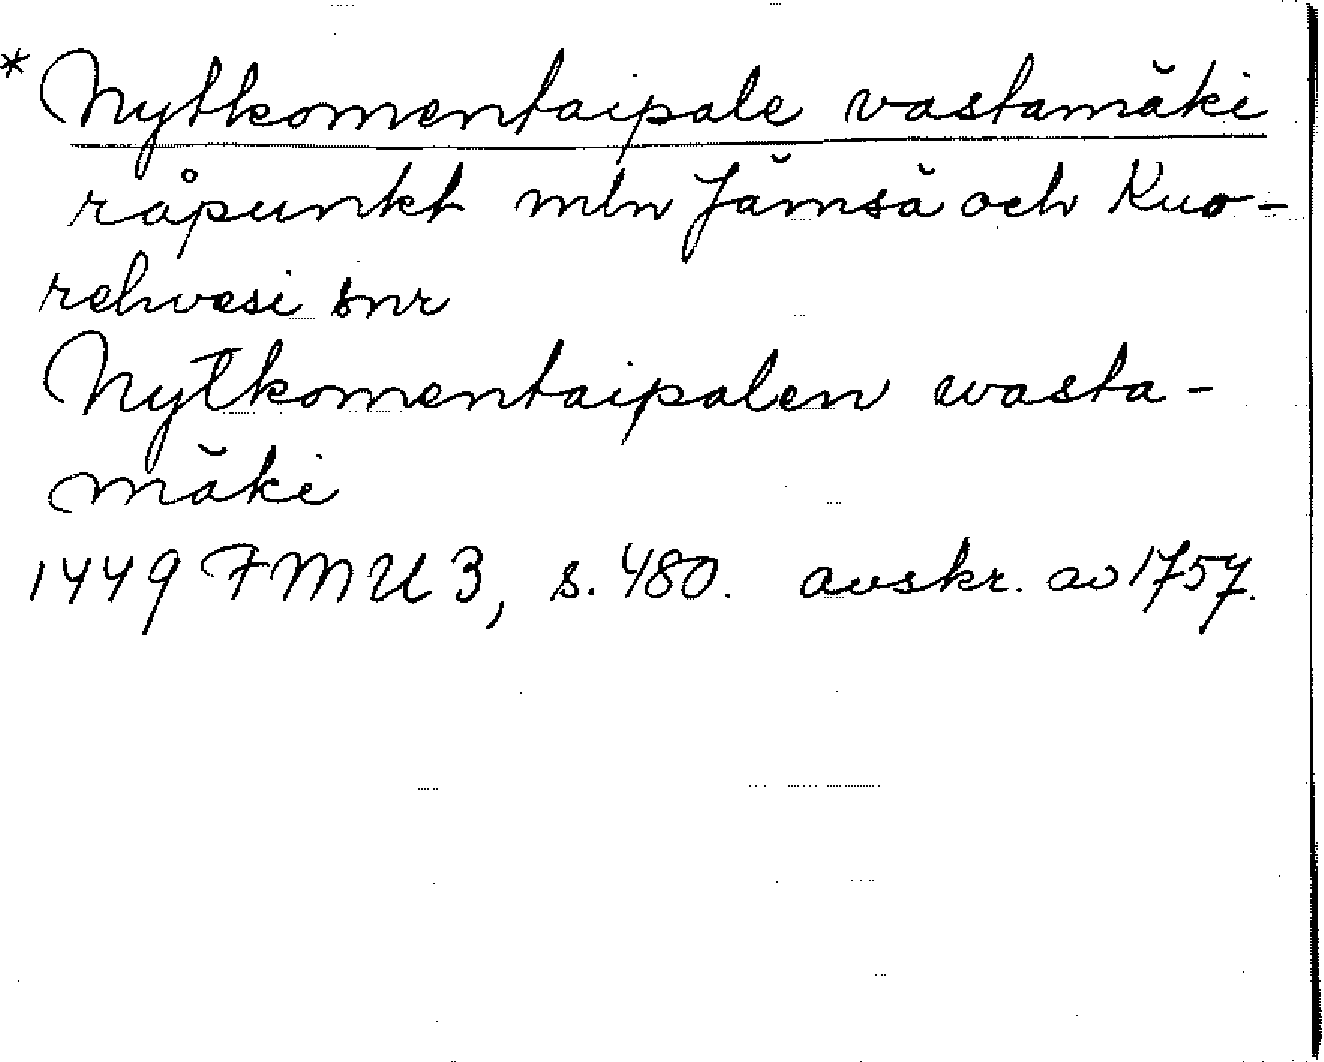 * Nytkomentaipale vastamäki
råpunkt mln Jämsä och Kuo-
rehvesi snr
Nytkomentaipalen wasta-
mäki
1449 FMU 3, s. 480. avskr. av 1757.